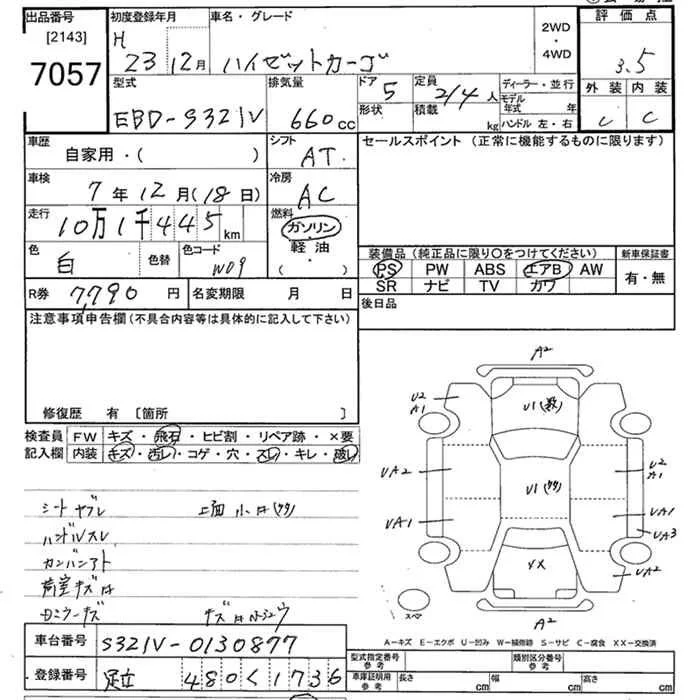 出品番号 初度登録年月 車名・グレード 2WD・4WD 評価点
[2143]
7057
H 23 12月 ハイゼットカーゴ 3.5
型式 排気量 ドア 5 定員 2/4人 ディーラー・並行 外装 内装
EBD-S321V 660cc 形状 積載 kg モデル年式 年 C C
ハンドル 左・右
車歴 シフト セールスポイント (正常に機能するものに限ります)
自家用・( ) AT
車検 冷房
7年 12月(18日) AC
走行 燃料
10万1千445km ガソリン
軽油
( ・ )
色 色替 色コード
白 W09
装備品(純正品に限り○をつけてください) 新車保証書
PS PW ABS エアB AW 有・無
SR ナビ TV カワ
R券 7,790円 名変期限 月 日 後日品
注意事項申告欄(不具合内容等は具体的に記入して下さい)
修復歴 有 [箇所 ]
検査員 FW キズ・飛石・ヒビ割・リペア跡・×要
記入欄 内装 キズ・汚レ・コゲ・穴・スレ・キレ・破レ
シートヤブレ 上面小凹(多)
ハンドルスレ
カンバンアト
荷室キズ凹
A2
U2
A1
U1(数)
UA2
U2
A1
U1(多)
UA1
UA1
UA3
XX
UA2
A2
スペア
A-キズ E-エクボ U-凹み W-補修跡 S-サビ C-腐食 XX-交換済
車台番号 S321V-0130877
登録番号 足立 480 く 1736
型式指定番号 参考 類別区分番号 参考
車庫証明用 参考 長さ cm 幅 cm 高さ cm